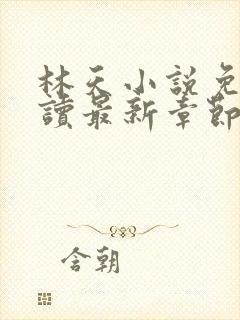 林天小說免
讀最新章節
含朝